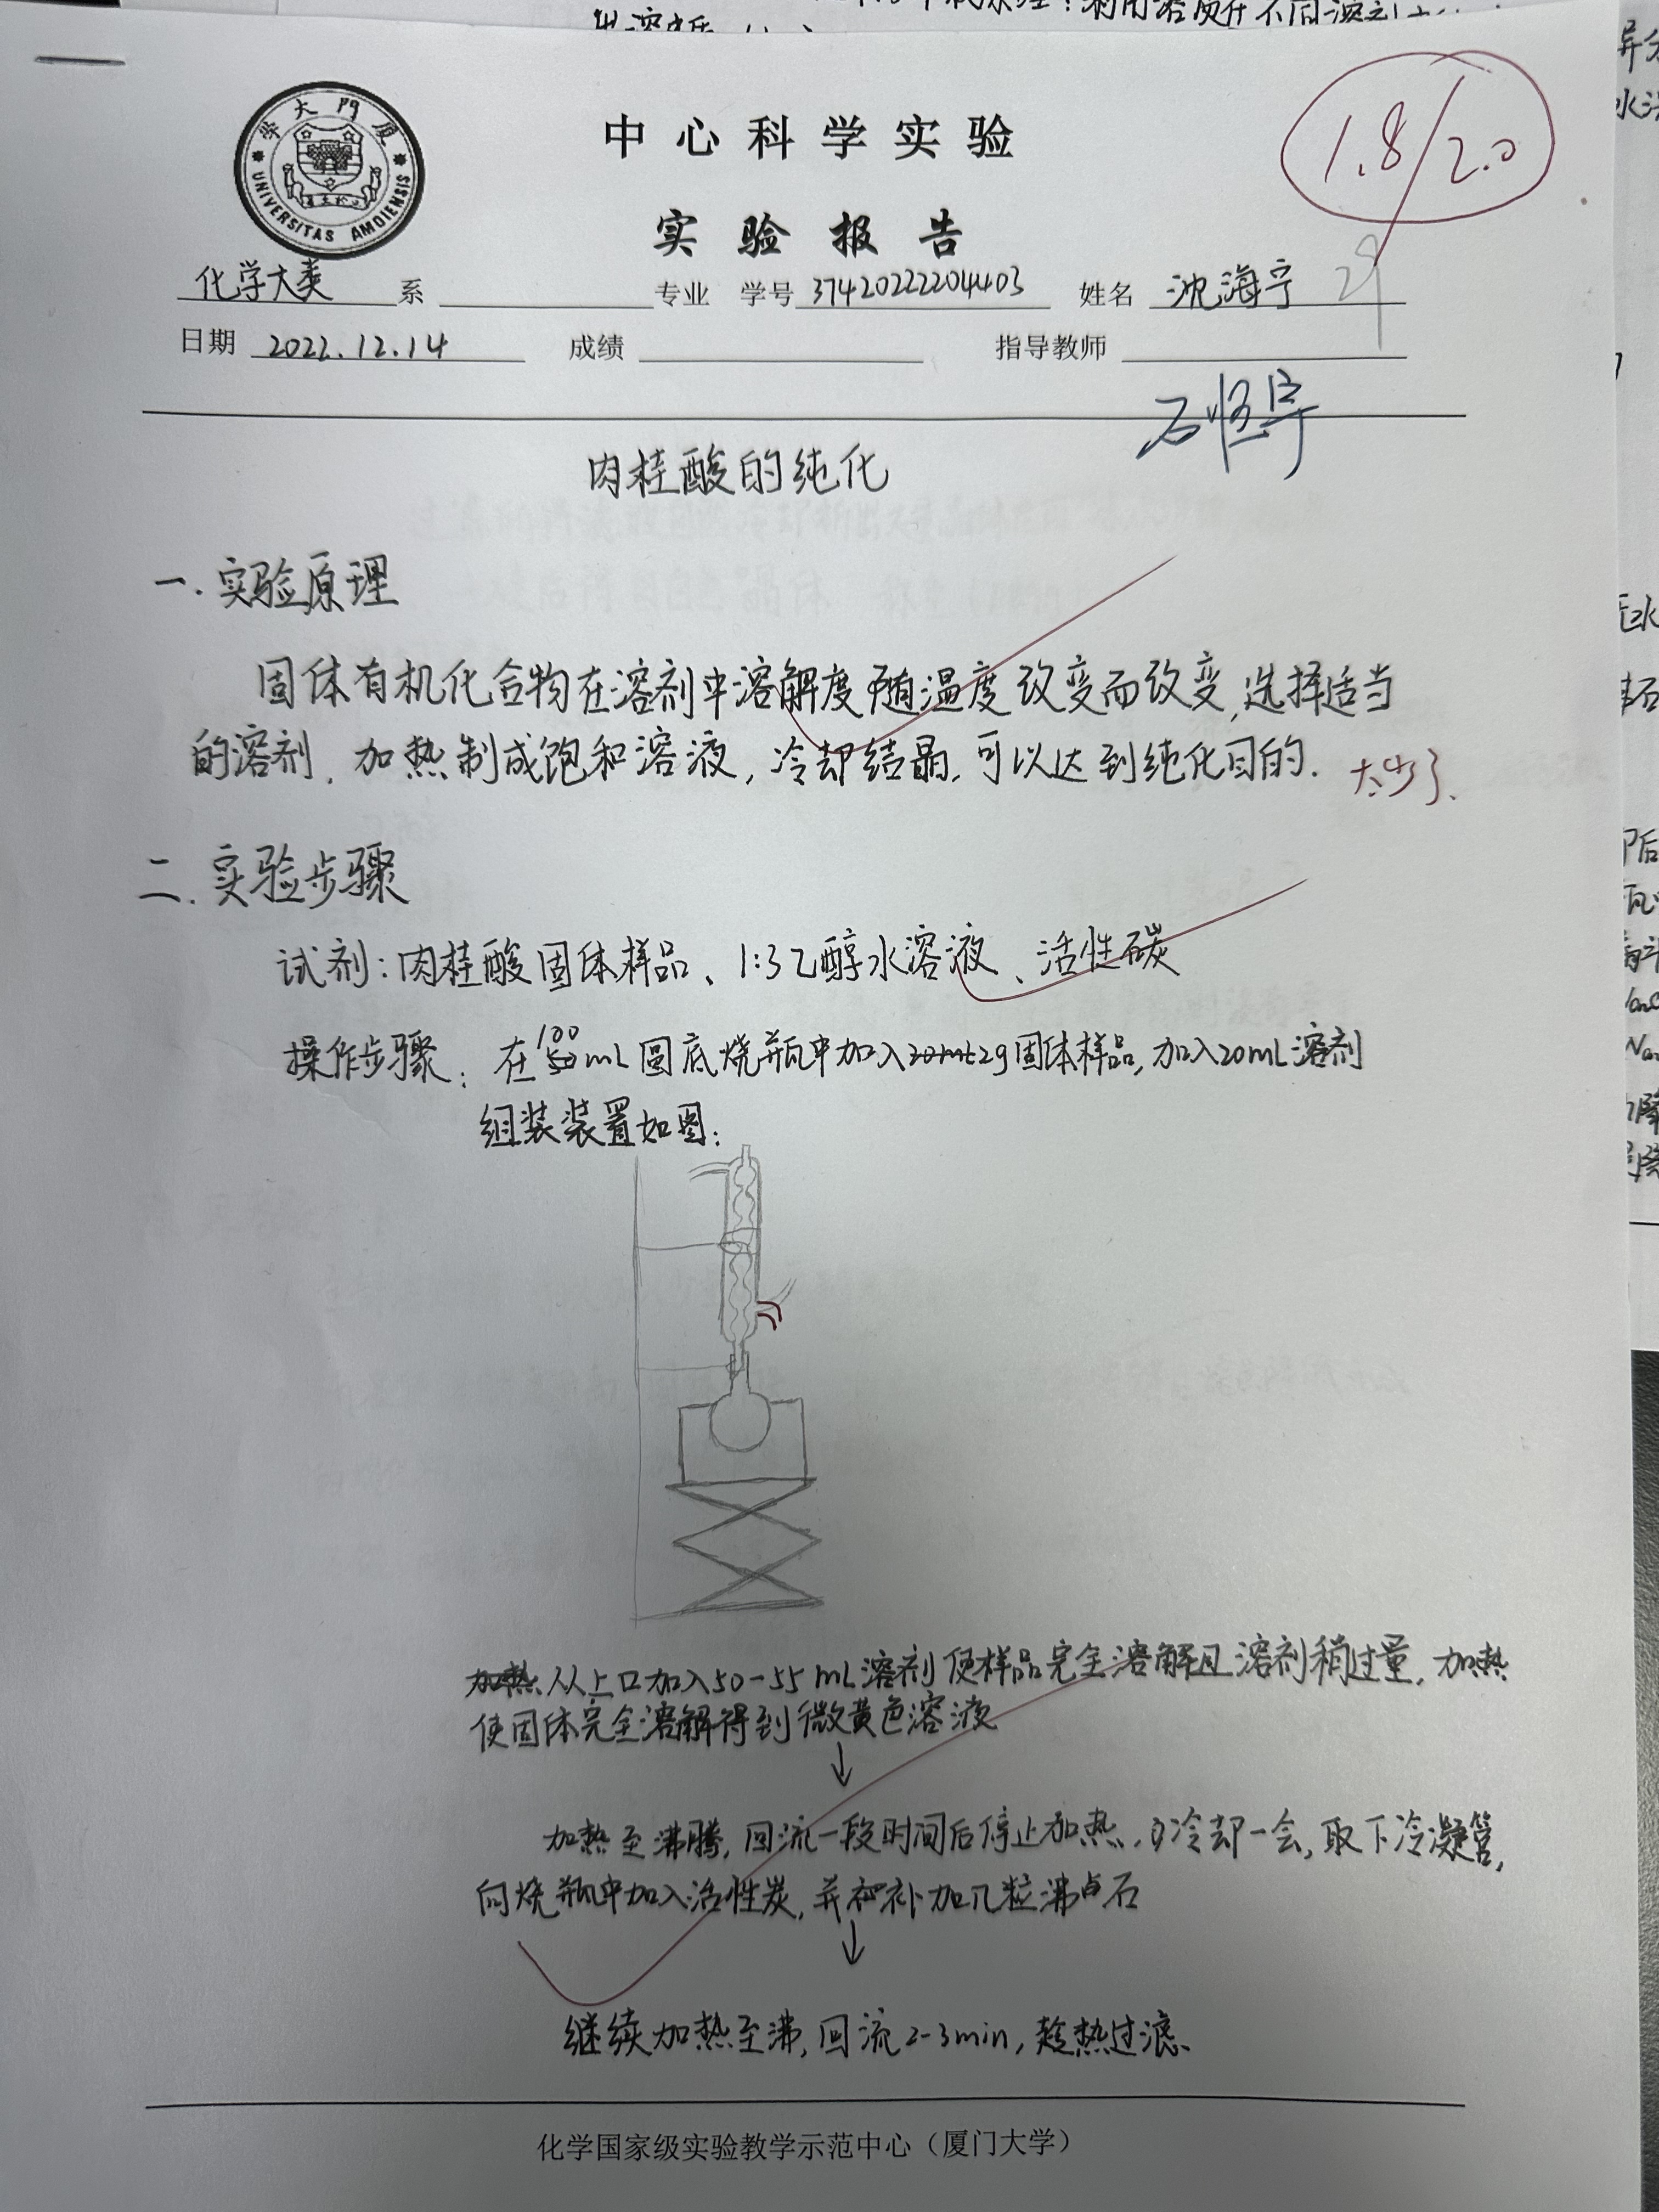 厦门大学
UNIVERSITAS AMOIENSIS
中心科学实验
实验报告
1.8/2.0
化学大类 系 专业 学号 37420222204403 姓名 沈海宁 29
日期 2022.12.14 成绩 指导教师
肉桂酸的纯化
一.实验原理
固体有机化合物在溶剂中溶解度随温度改变而改变,选择适当
的溶剂,加热制成饱和溶液,冷却结晶,可以达到纯化目的.
太少了.
二.实验步骤
试剂:肉桂酸固体样品、1:3乙醇水溶液、活性碳
操作步骤:在100mL圆底烧瓶中加入2g固体样品,加入20mL溶剂
组装装置如图:
加热从上口加入50-55mL溶剂使样品完全溶解且溶剂稍过量,加热
使固体完全溶解得到微黄色溶液
↓
加热至沸腾,回流一段时间后停止加热,冷却一会,取下冷凝管,
向烧瓶中加入活性炭,并补加几粒沸点石
↓
继续加热至沸,回流2-3min,趁热过滤、
化学国家级实验教学示范中心(厦门大学)